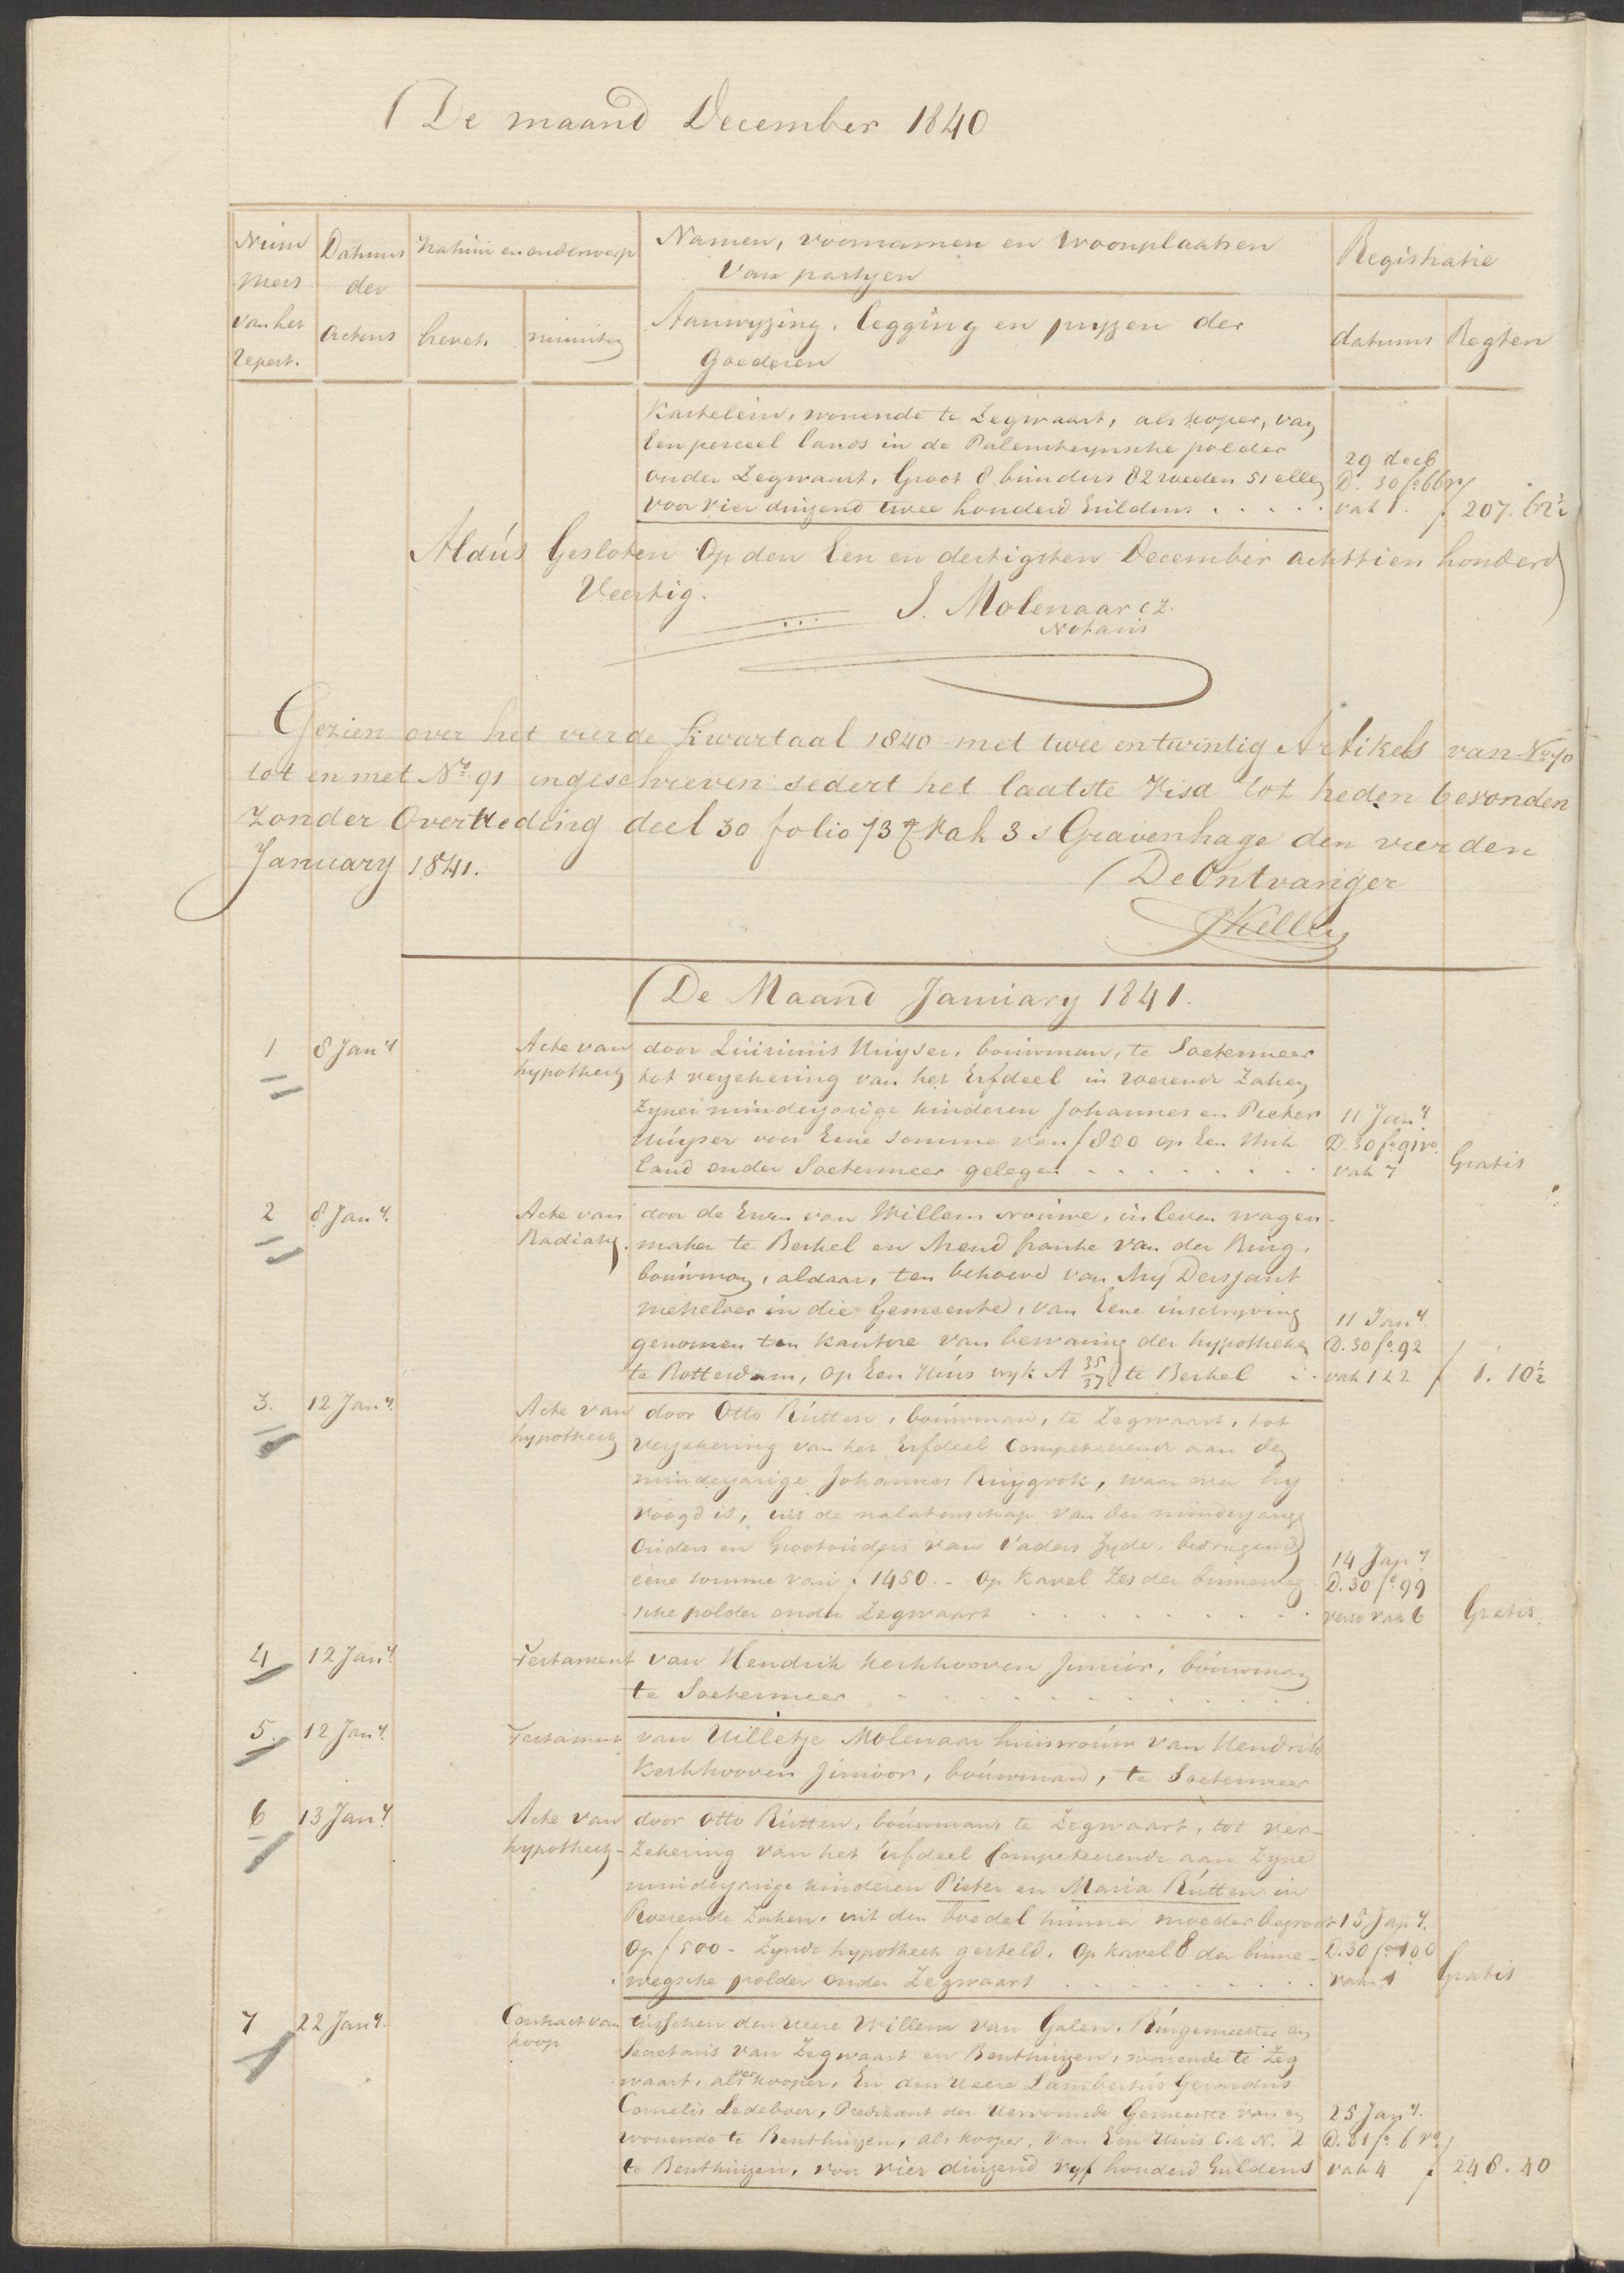 De maand December 1840
Num
mers
van het
Repert.
Datums
der
Actens
Natuur en onderwerp
brevets
minuten
Namen, voornamen en Woonplaatsen
van partyen
Aanwyzing, legging en pryzen der
goederen
Registratie
datums
Regten
Kastelein, wonende te Zegwaart, als kooper, van
Een perceel lands in de Palensteynsche polder
onder Zegwaart, Groot 8 bunders 82 roeden 51 ellen
voor vier duizend twee honderd Guldens . . . . .
29 decb
D. 30 fo 66 vo
vak 1.
f 207. 62½
Aldus Gesloten Op den Een en dertigsten December achttien honderd
Veertig.
J. Molenaar Cz.
Notaris
Gezien over het vierde kwartaal 1840 met twee en twintig Artikels van No 70
tot en met No 91 ingeschreven sedert het laatste Visa tot heden bevonden
zonder Overtreding deel 30 folio 73 vak 3 s Gravenhage den vierden
January 1841.
De Ontvanger
De Maand January 1841.
1
8 Jany
Acte van
hypotheek
door Quirinus Huyser, bouwman, te Soetermeer
tot verzekering van het Erfdeel in roerende Zaken
Zyner minderjarige kinderen Johannes en Pieter
Huyser voor Eene somme van f 800 op Een stuk
land onder Soetermeer gelegen . . . . . . . .
11 Jany
D. 30 fo 91 vo
vak 7
Gratis
2
8 Jany.
Acte van
Radiatie.
door de Erven van Willem Nouwe, in leven wagen-
maker te Berkel en Arend Franke van der Burg,
bouwman, aldaar, ten behoeve van Ary Dersjant
metselaer in die Gemeente, van Eene inschryving
genomen ten kantore van bewaring der hypotheken
te Rotterdam, op Een Huis wyk A 35/37 te Berkel . .
11 Jany
D. 30 fo 92
vak 1 2 2
f 1. 10½
3.
12 Jany.
Acte van
hypotheek
door Otto Rutten, bouwman, te Zegwaart, tot
verzekering van het Erfdeel Competeerende aan den
minderjarige Johannes Ruygrok, waar over hy
voogd is, uit de nalatenschap van der minderjarige
Ouders en Grootouders van Vaders Zyde, bedragende
eene somme van f 1450. - Op Kavel Zes der binneweg-
sche polder onder Zegwaart . . . . . . . .
14 Jany
D. 30 fo 99
verso vak 6
Gratis.
4
12 Jany.
Testament
van Hendrik Kerkhooven Junior, bouwman
te Soetermeer . . . . . . . . . . . .
5.
12 Jany.
Testament
van Willetje Molenaar huisvrouw van Hendrik
Kerkhooven Junioor, bouwman, te Soetermeer
6
13 Jany
Acte van
hypotheek-
door Otto Rutten, bouwmans te Zegwaart, tot ver-
zekering van het Erfdeel Competeerende aan Zyne
minderjarige kinderen Pieter en Maria Rutten in
Roerende Zaken, uit den boedel hunner moeder begroot
Op f 500 - Zynde hypotheek gesteld, Op kavel 8 der binne-
wegsche polder onder Zegwaart . . . . . . . . . .
15 Jany.
D. 30 fo 100
vak 1
Gratis
7
22 Jany.
Contract van
koop
tusschen den Heere Willem van Galen, Burgemeester en
Secretaris van Zegwaart en Benthuizen, wonende te Zeg
waart, als verkooper, En den Heere Lambertus Gerardus
Cornelis Ledeboer, Predikant der Hervormde Gemeente van en
wonende te Benthuizen, als kooper, van Een Huis C.a N. 2
te Benthuizen, voor vier duizend vyf honderd Guldens
25 Jany.
D. 31 fo 6 vo
vak 4
f 248. 40